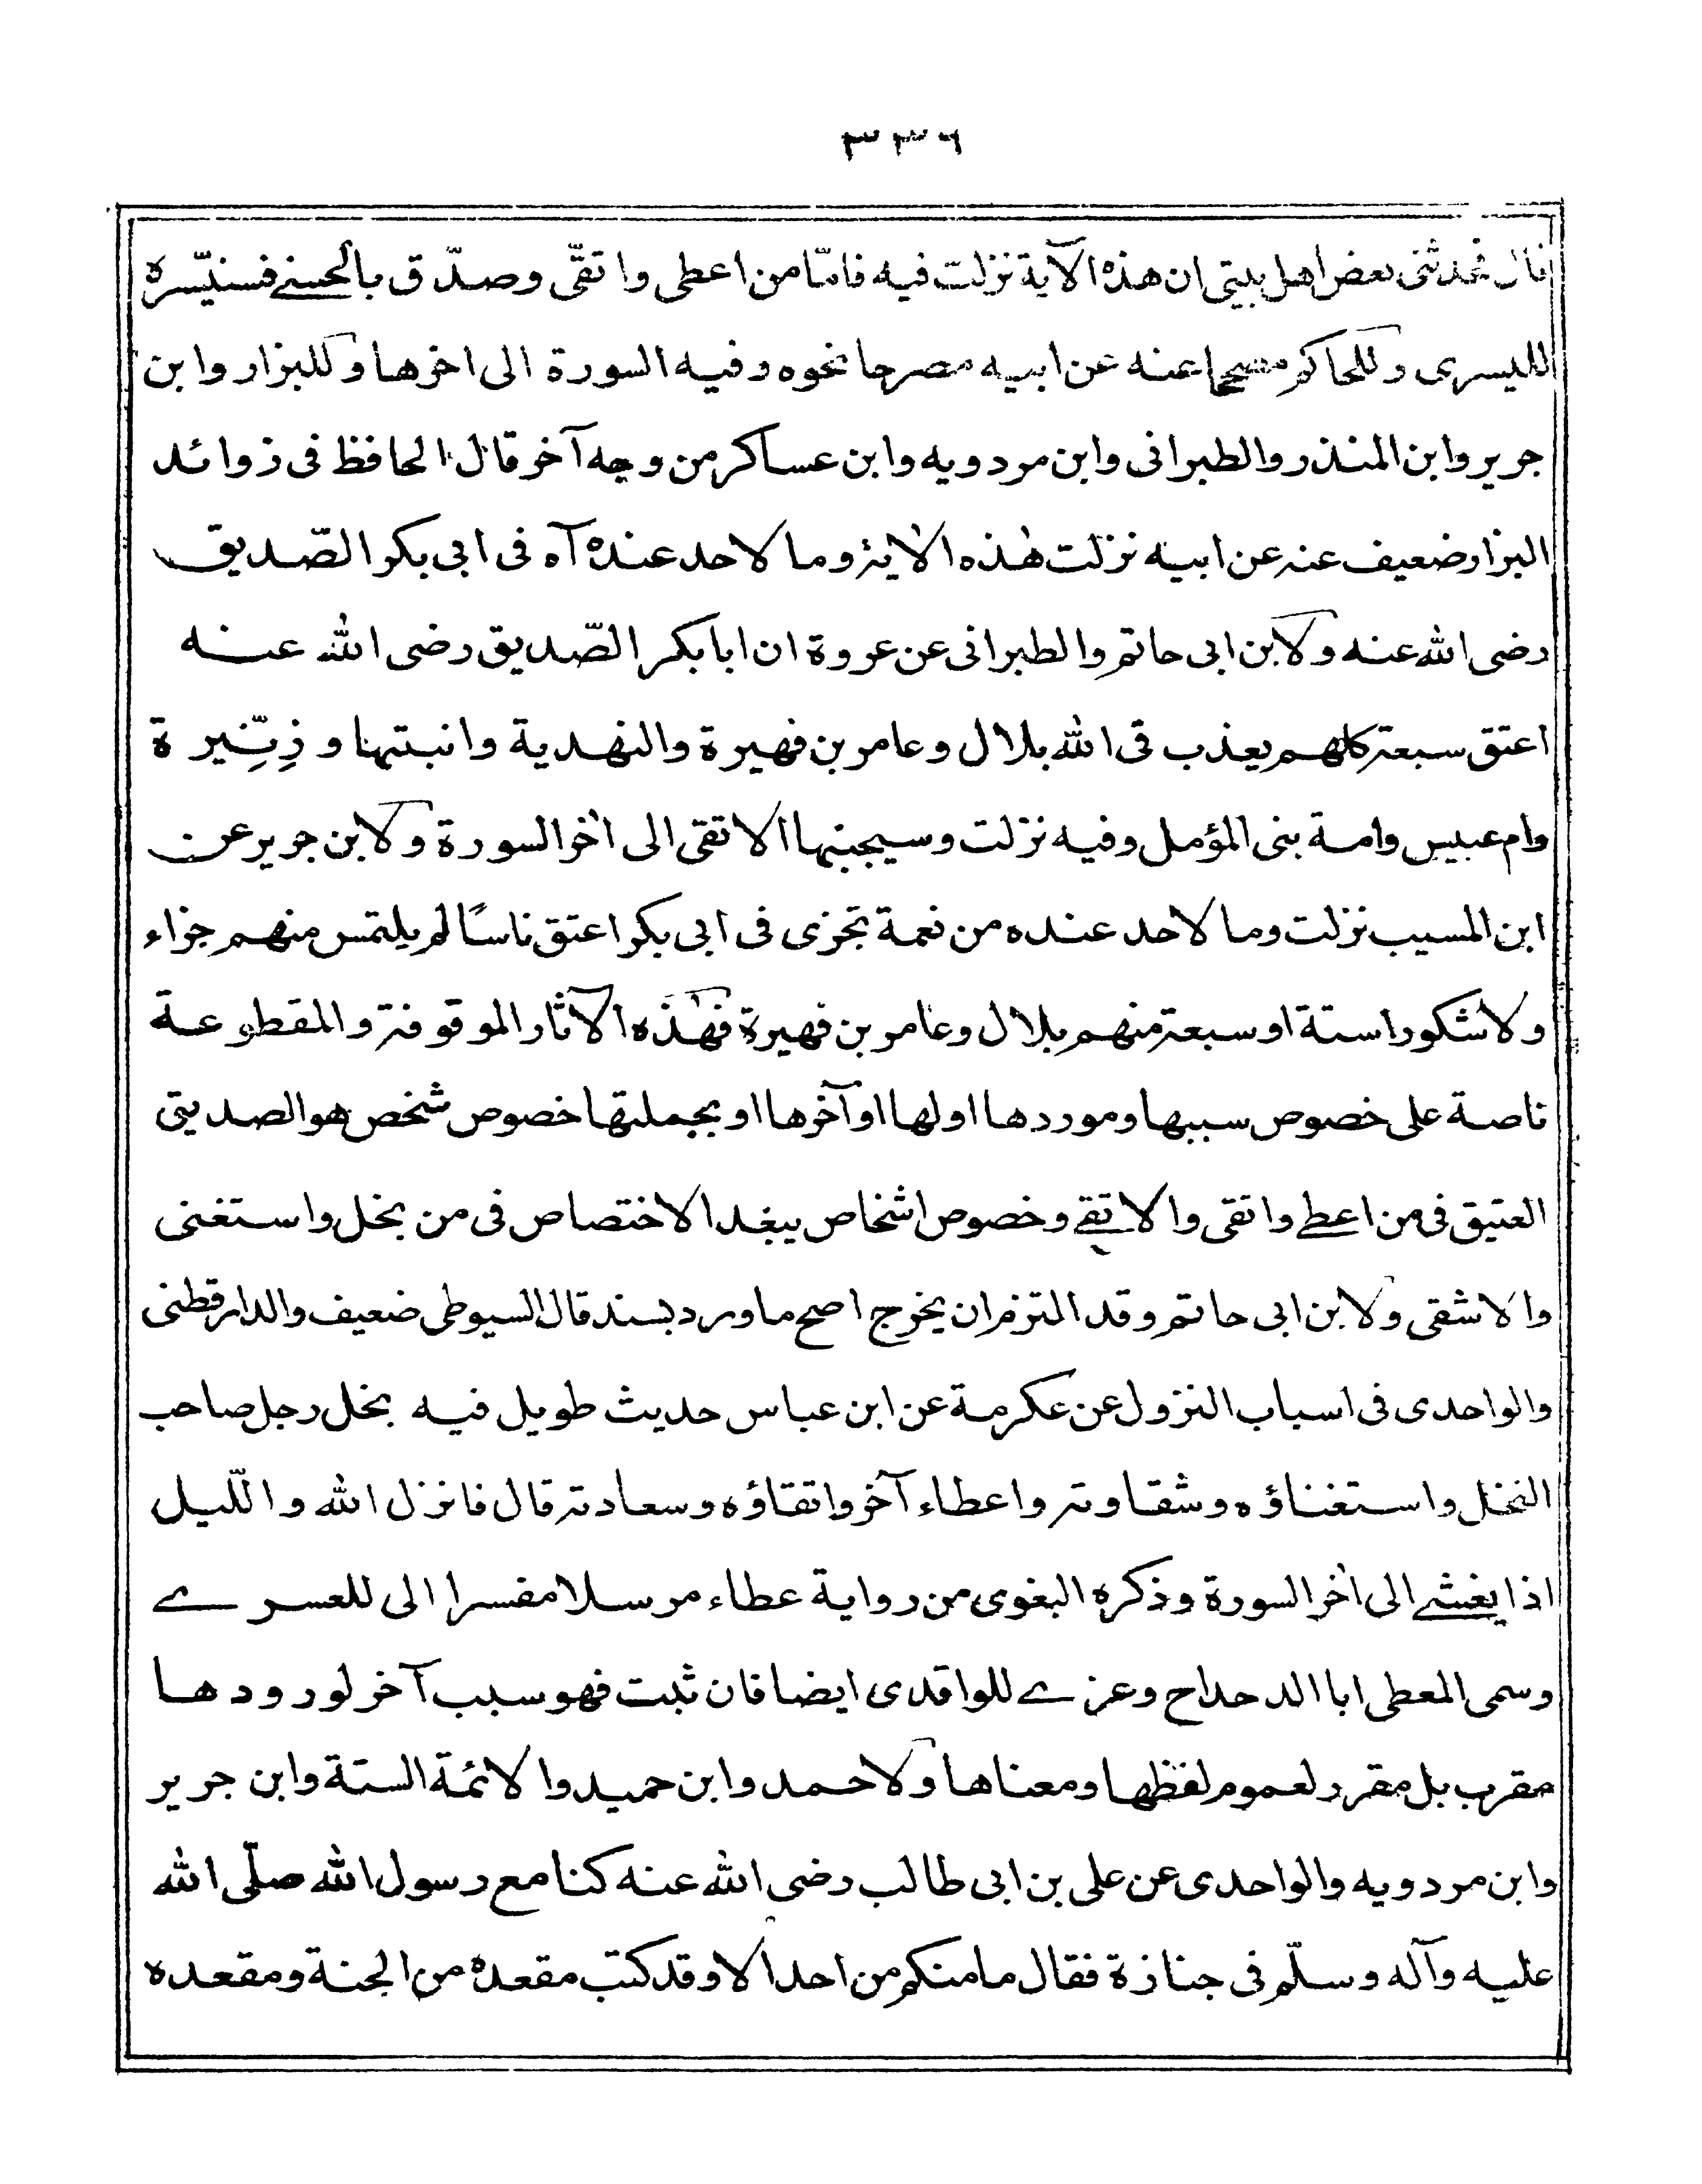 ٣٣٦
قال فحدثنی بعض اهل بیتی ان هذه الآیة نزلت فیه فامّا من اعطی واتقّی وصدّق بالحسنے فسنیّسره
للیسری وللحاکم مصححا عنه عن ابیه مصرحا نحوه وفیه السورة الی اخرها وللبزار وابن
جریر وابن المنذر والطبرانی وابن مردویه وابن عساکر من وجه آخر قال الحافظ فی زوائد
البزار ضعیف عنه عن ابیه نزلت هٰذه الاٰیة وما لاحد عنده آه فی ابی بکر الصّدیق
رضی الله عنه ولابن ابی حاتم والطبرانی عن عروة ان ابا بکر الصّدیق رضی الله عنه
اعتق سبعة کلهم یعذب فی الله بلال وعامر بن فهیرة والنهدیة وانبتها و زِنِّیرة
وام عبیس وامة بنی المؤمل وفیه نزلت وسیجنبها الاتقی الی اٰخر السورة ولابن جریر عن
ابن المسیب نزلت وما لاحد عنده من نعمة تجزی فی ابی بکر اعتق ناسًا لم یلتمس منهم جزاء
ولا شکورا ستة او سبعة منهم بلال وعامر بن فهیرة فهٰذه الآثار الموقوفة والمقطوعة
ناصة علی خصوص سببها وموردها اولها او آخرها او بجملتها خصوص شخص هو الصدیق
العتیق فی من اعطے واتقی والاتقے وخصوص اشخاص یبغد الاختصاص فی من بخل واستغنی
والاشقی ولابن ابی حاتم وقد التزم ان یخرج اصح ما ورد بسند قال السیوطی ضعیف والدارقطنی
والواحدی فی اسباب النزول عن عکرمة عن ابن عباس حدیث طویل فیه بخل رجل صاحب
النخل واستغناؤه وشقاوته واعطاء آخر واتقاؤه وسعادته قال فانزل الله والّلیل
اذا یغشے الی اٰخر السورة وذکره البغوی من روایة عطاء مرسلا مفسرا الی للعسرے
وسمی المعطی ابا الدحداح وعزے للواقدی ایضا فان ثبت فهو سبب آخر لورودها
مقرب بل مقرر لعموم لفظها ومعناها ولاحمد وابن حمید والائمة الستة وابن جریر
وابن مردویه والواحدی عن علی بن ابی طالب رضی الله عنه کنا مع رسول الله صلّی الله
علیه وآله وسلّم فی جنازة فقال ما منکم من احد الا وقد کتب مقعده من الجنة ومقعده